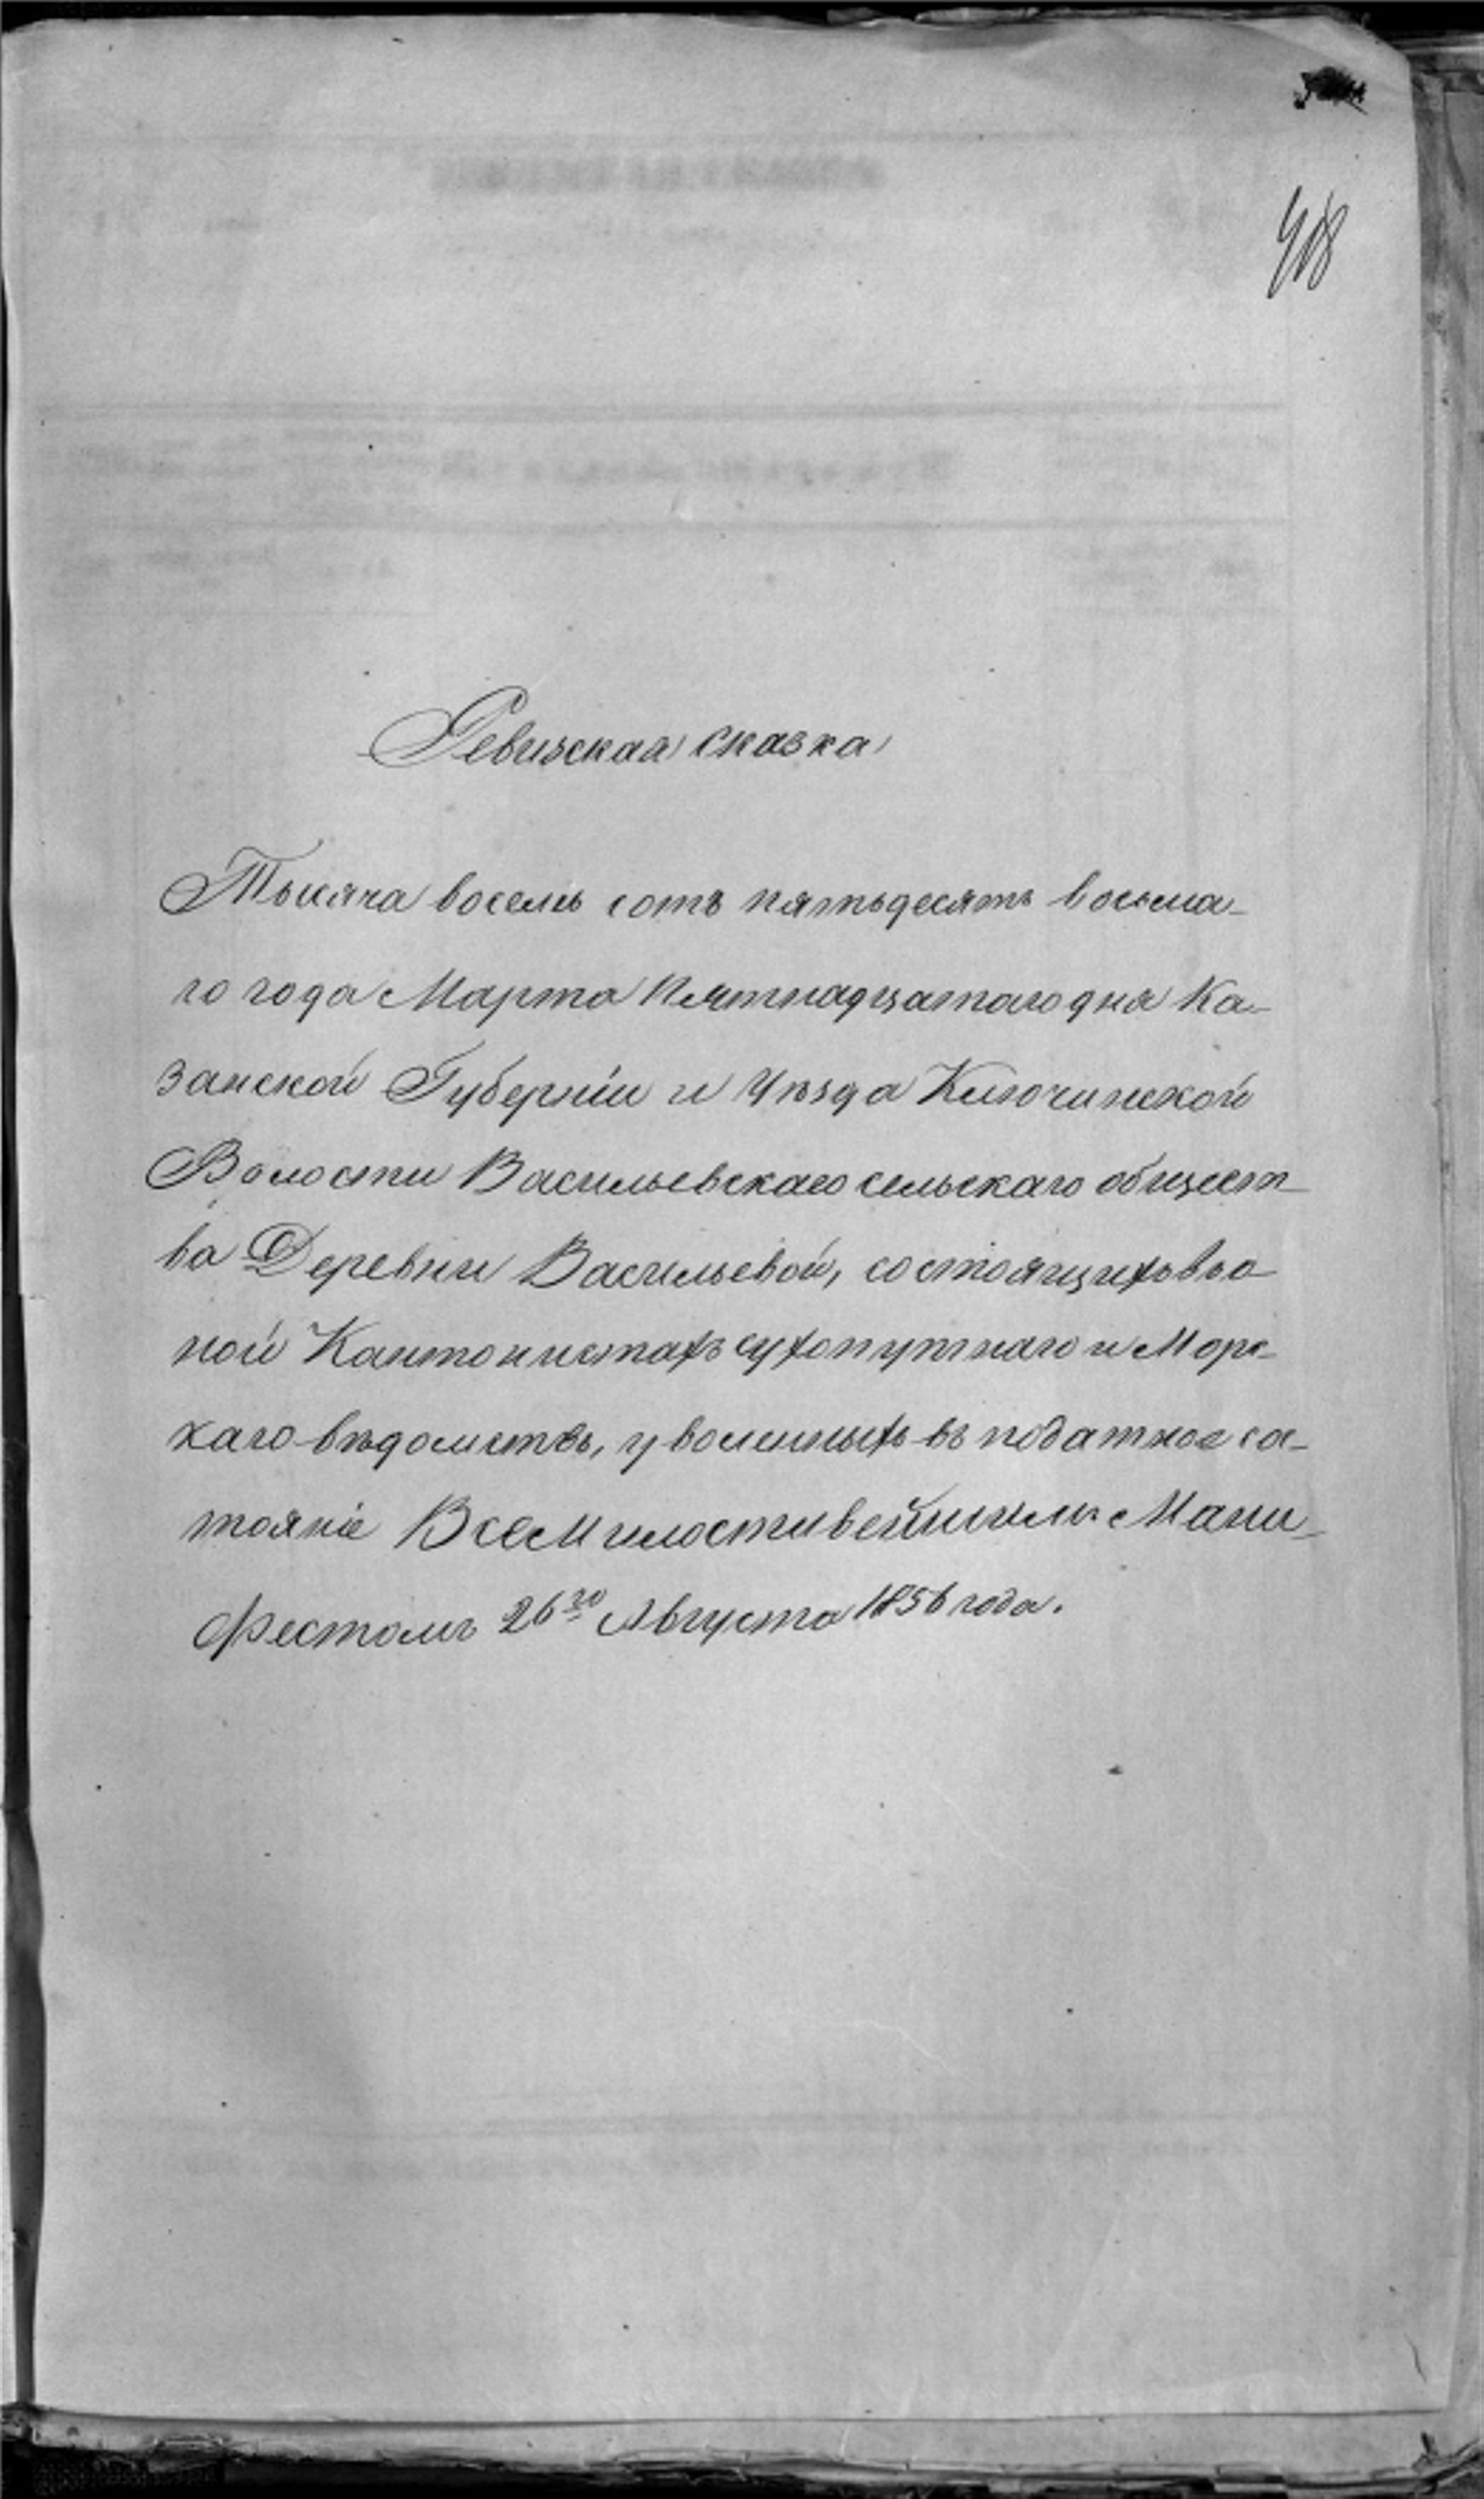 408
Ревизская сказка
Тысяча восемь сотъ пятьдесять восьма-
го года Марта Пятнадцатаго дня Ка-
занской Губерніи и Уѣзда Ключинской
Волости Васильевскаго сельскаго общест-
ва Деревни Васильевой, состоящихъ въ о
ной Кантонистахъ сухопутнаго и Морс-
каго вѣдомствъ, уволенныхъ въ податное сос-
тояніе ВсеМилостивейшимъ Мани-
фестомъ 26го Августа 1856 года.